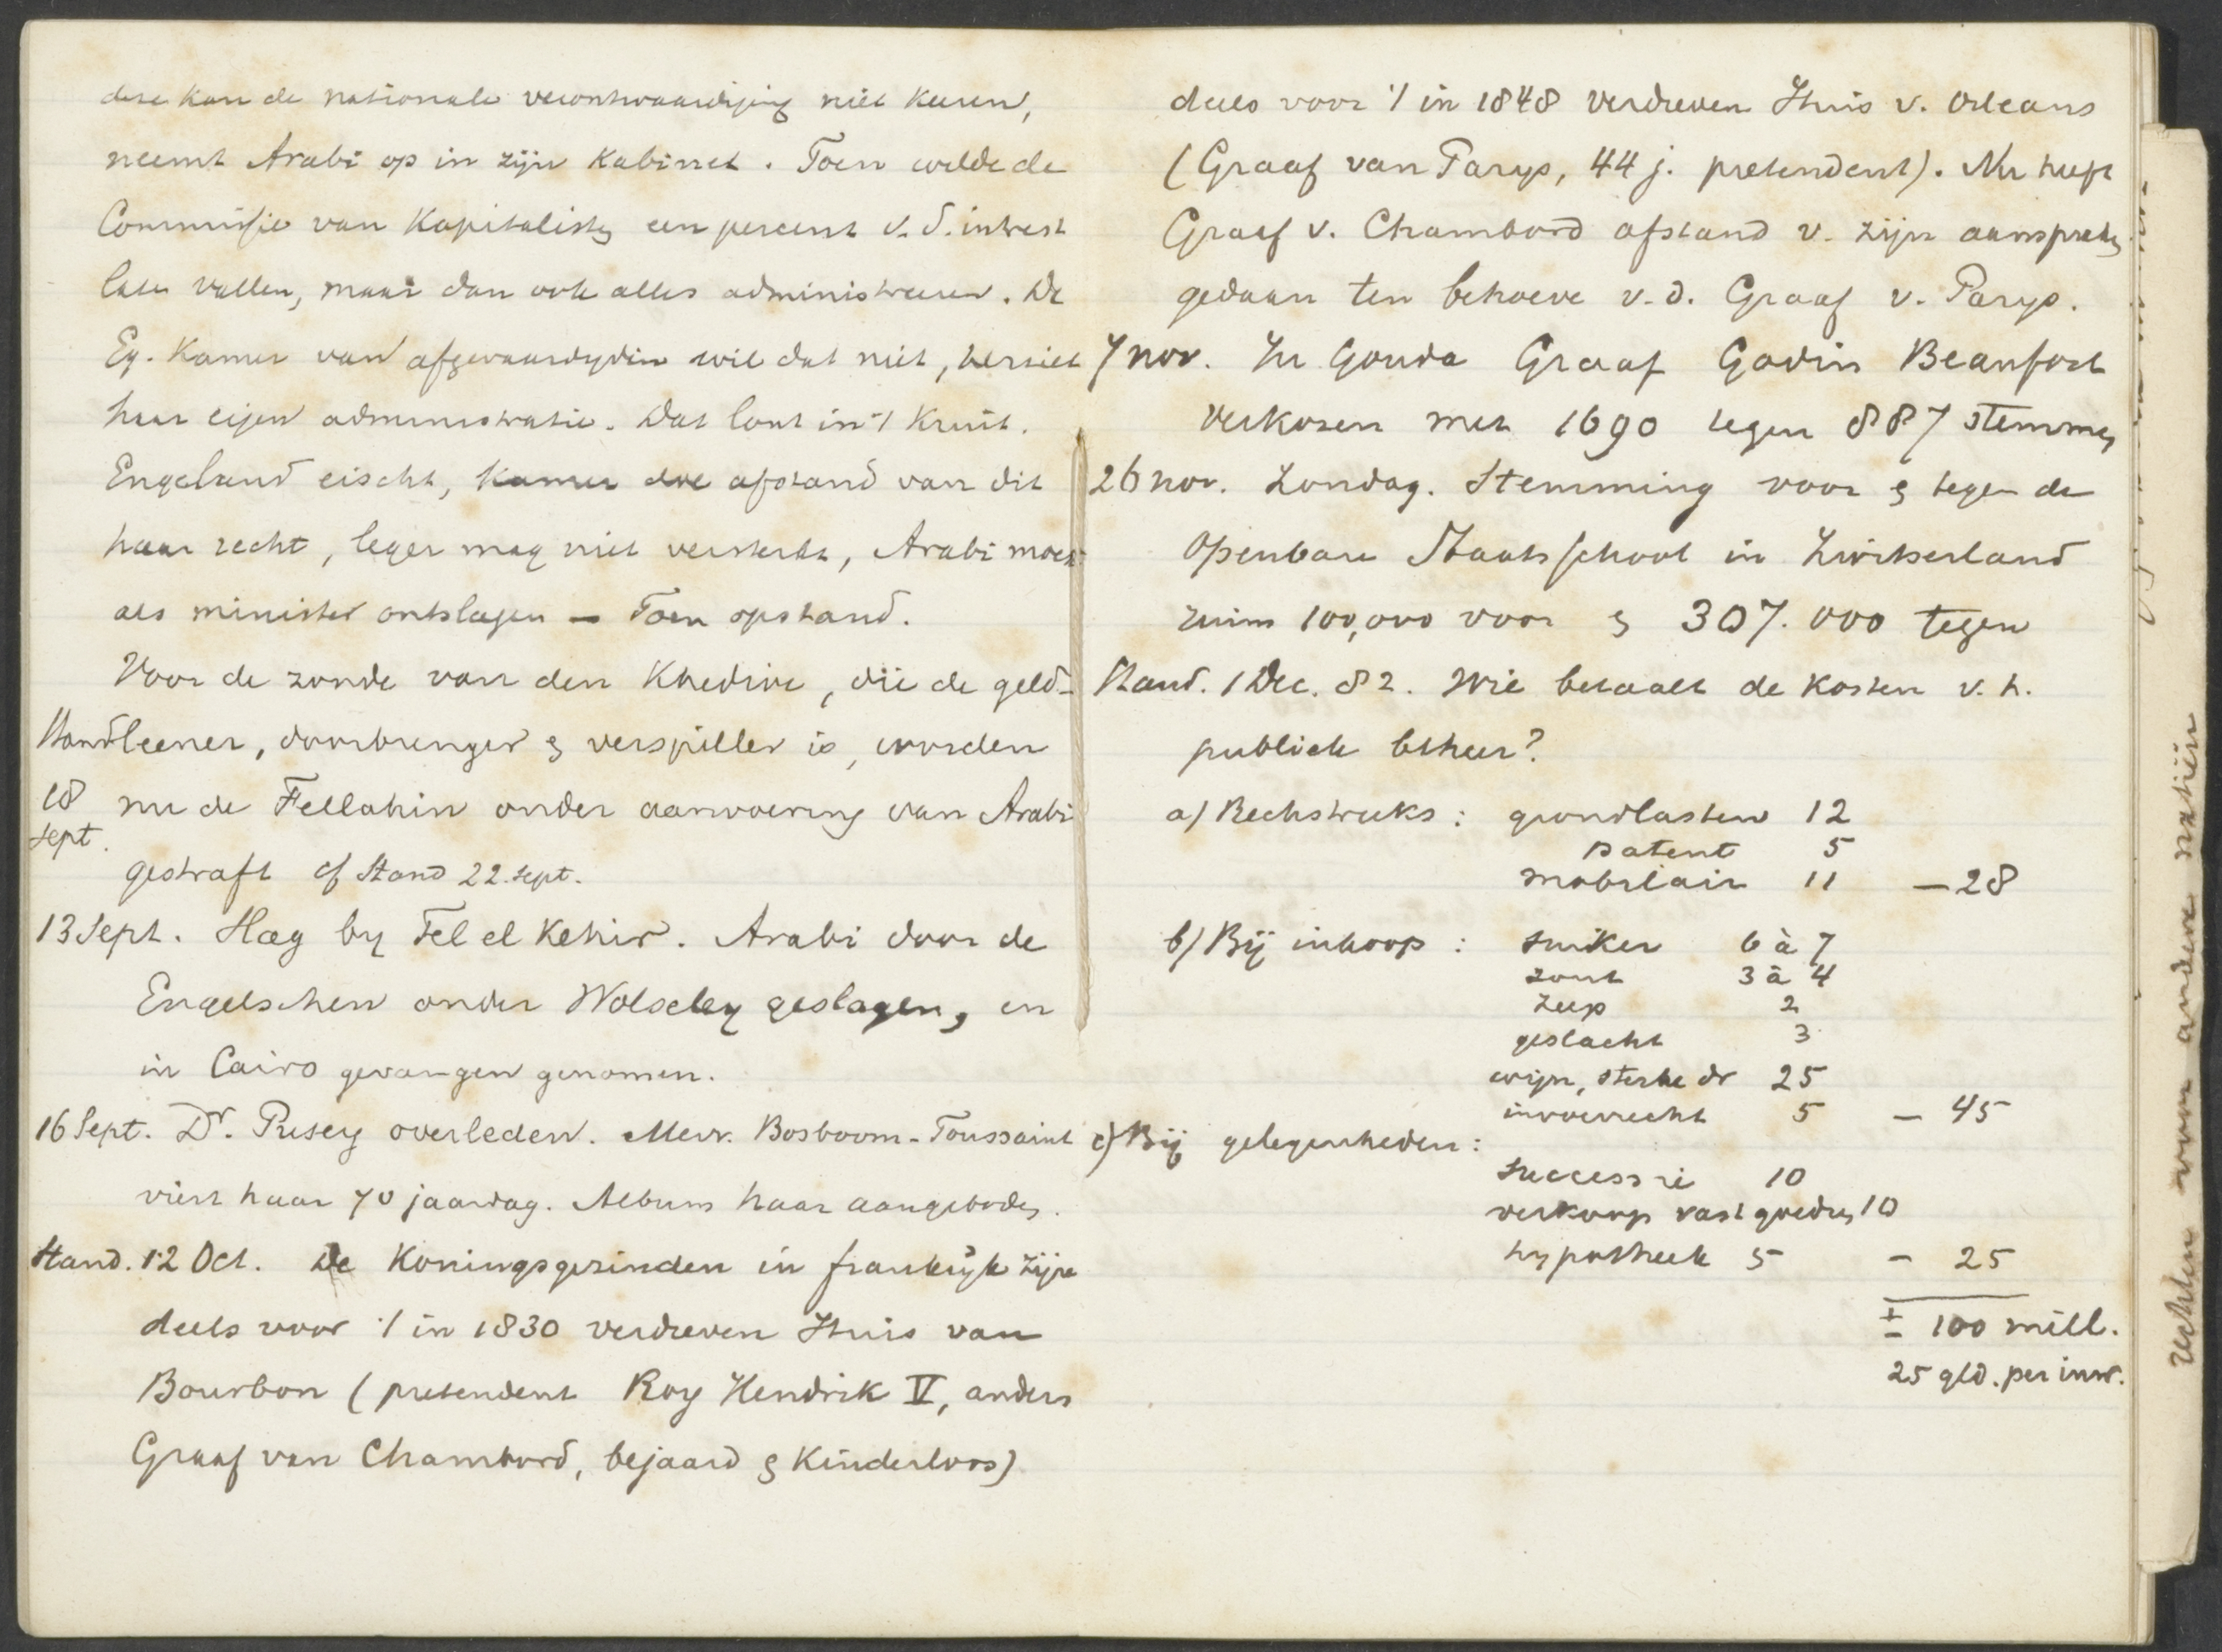 deze kan de nationale verontwaardiging niet keeren,
neemt Arabi op in zijn kabinet. Toen wilde de
Commissie van Kapitalisten een percent v. d. intrest
laten vallen, maar dan ook alles administreeren. De
Eg. Kamer van afgevaardigden wil dat niet, herziet
haar eigen administratie. Dat lont in 't kruit.
Engeland eischt, Kamer doe afstand van dit
haar recht, leger mag niet versterkt, Arabi moest
als minister ontslagen – Toen opstand.
Voor de zonde van den Khedive, die de geld-
Stand leener, doorbrenger & verspiller is, worden
18 sept. nu de Fellahin onder aanvoering van Arabi
gestraft cf Stand 22. sept.
13 Sept. Slag by Tel el Kebir. Arabi door de
Engelschen onder Wolseley geslagen, en
in Cairo gevangen genomen.
16 Sept. Dr. Pusey overleden. Mevr. Bosboom-Toussaint
viert haar 70 jaardag. Album haar aangeboden.
Stand. 12 Oct. De Koningsgezinden in frankrijk zijn
deels voor 't in 1830 verdreven Huis van
Bourbon (pretendent Roy Hendrik V, anders
Graaf van Chambord, bejaard & Kinderloos)
deels voor 't in 1848 verdreven Huis v. Orleans
(Graaf van Parys, 44 j. pretendent). Nu heeft
Graaf v. Chambord afstand v. zijn aanspraken
gedaan ten behoeve v.d. Graaf v. Parys.
7 nov. In Gouda Graaf Godin Beaufort
verkozen met 1690 tegen 887 stemmen
26 nov. Zondag. Stemming voor & tegen de
Openbare Staatsschool in Zwitserland
ruim 100,000 voor & 307.000 tegen
Stand. 1 Dec. 82. Wie betaalt de kosten v. h.
publiek beheer?
a) Rechstreeks: grondlasten 12
patent 5
mobilair 11 – 28
b) Bij inkoop: suiker 6 à 7
zout 3 à 4
zeep 2
geslacht 3
wijn, sterke dr 25
invoerrecht 5 – 45
c) Bij gelegenheden:
successie 10
verkoop vast goederen 10
hypotheek 5 – 25
± 100 mill.
25 gld. per inw.
rechten voor andere natiën